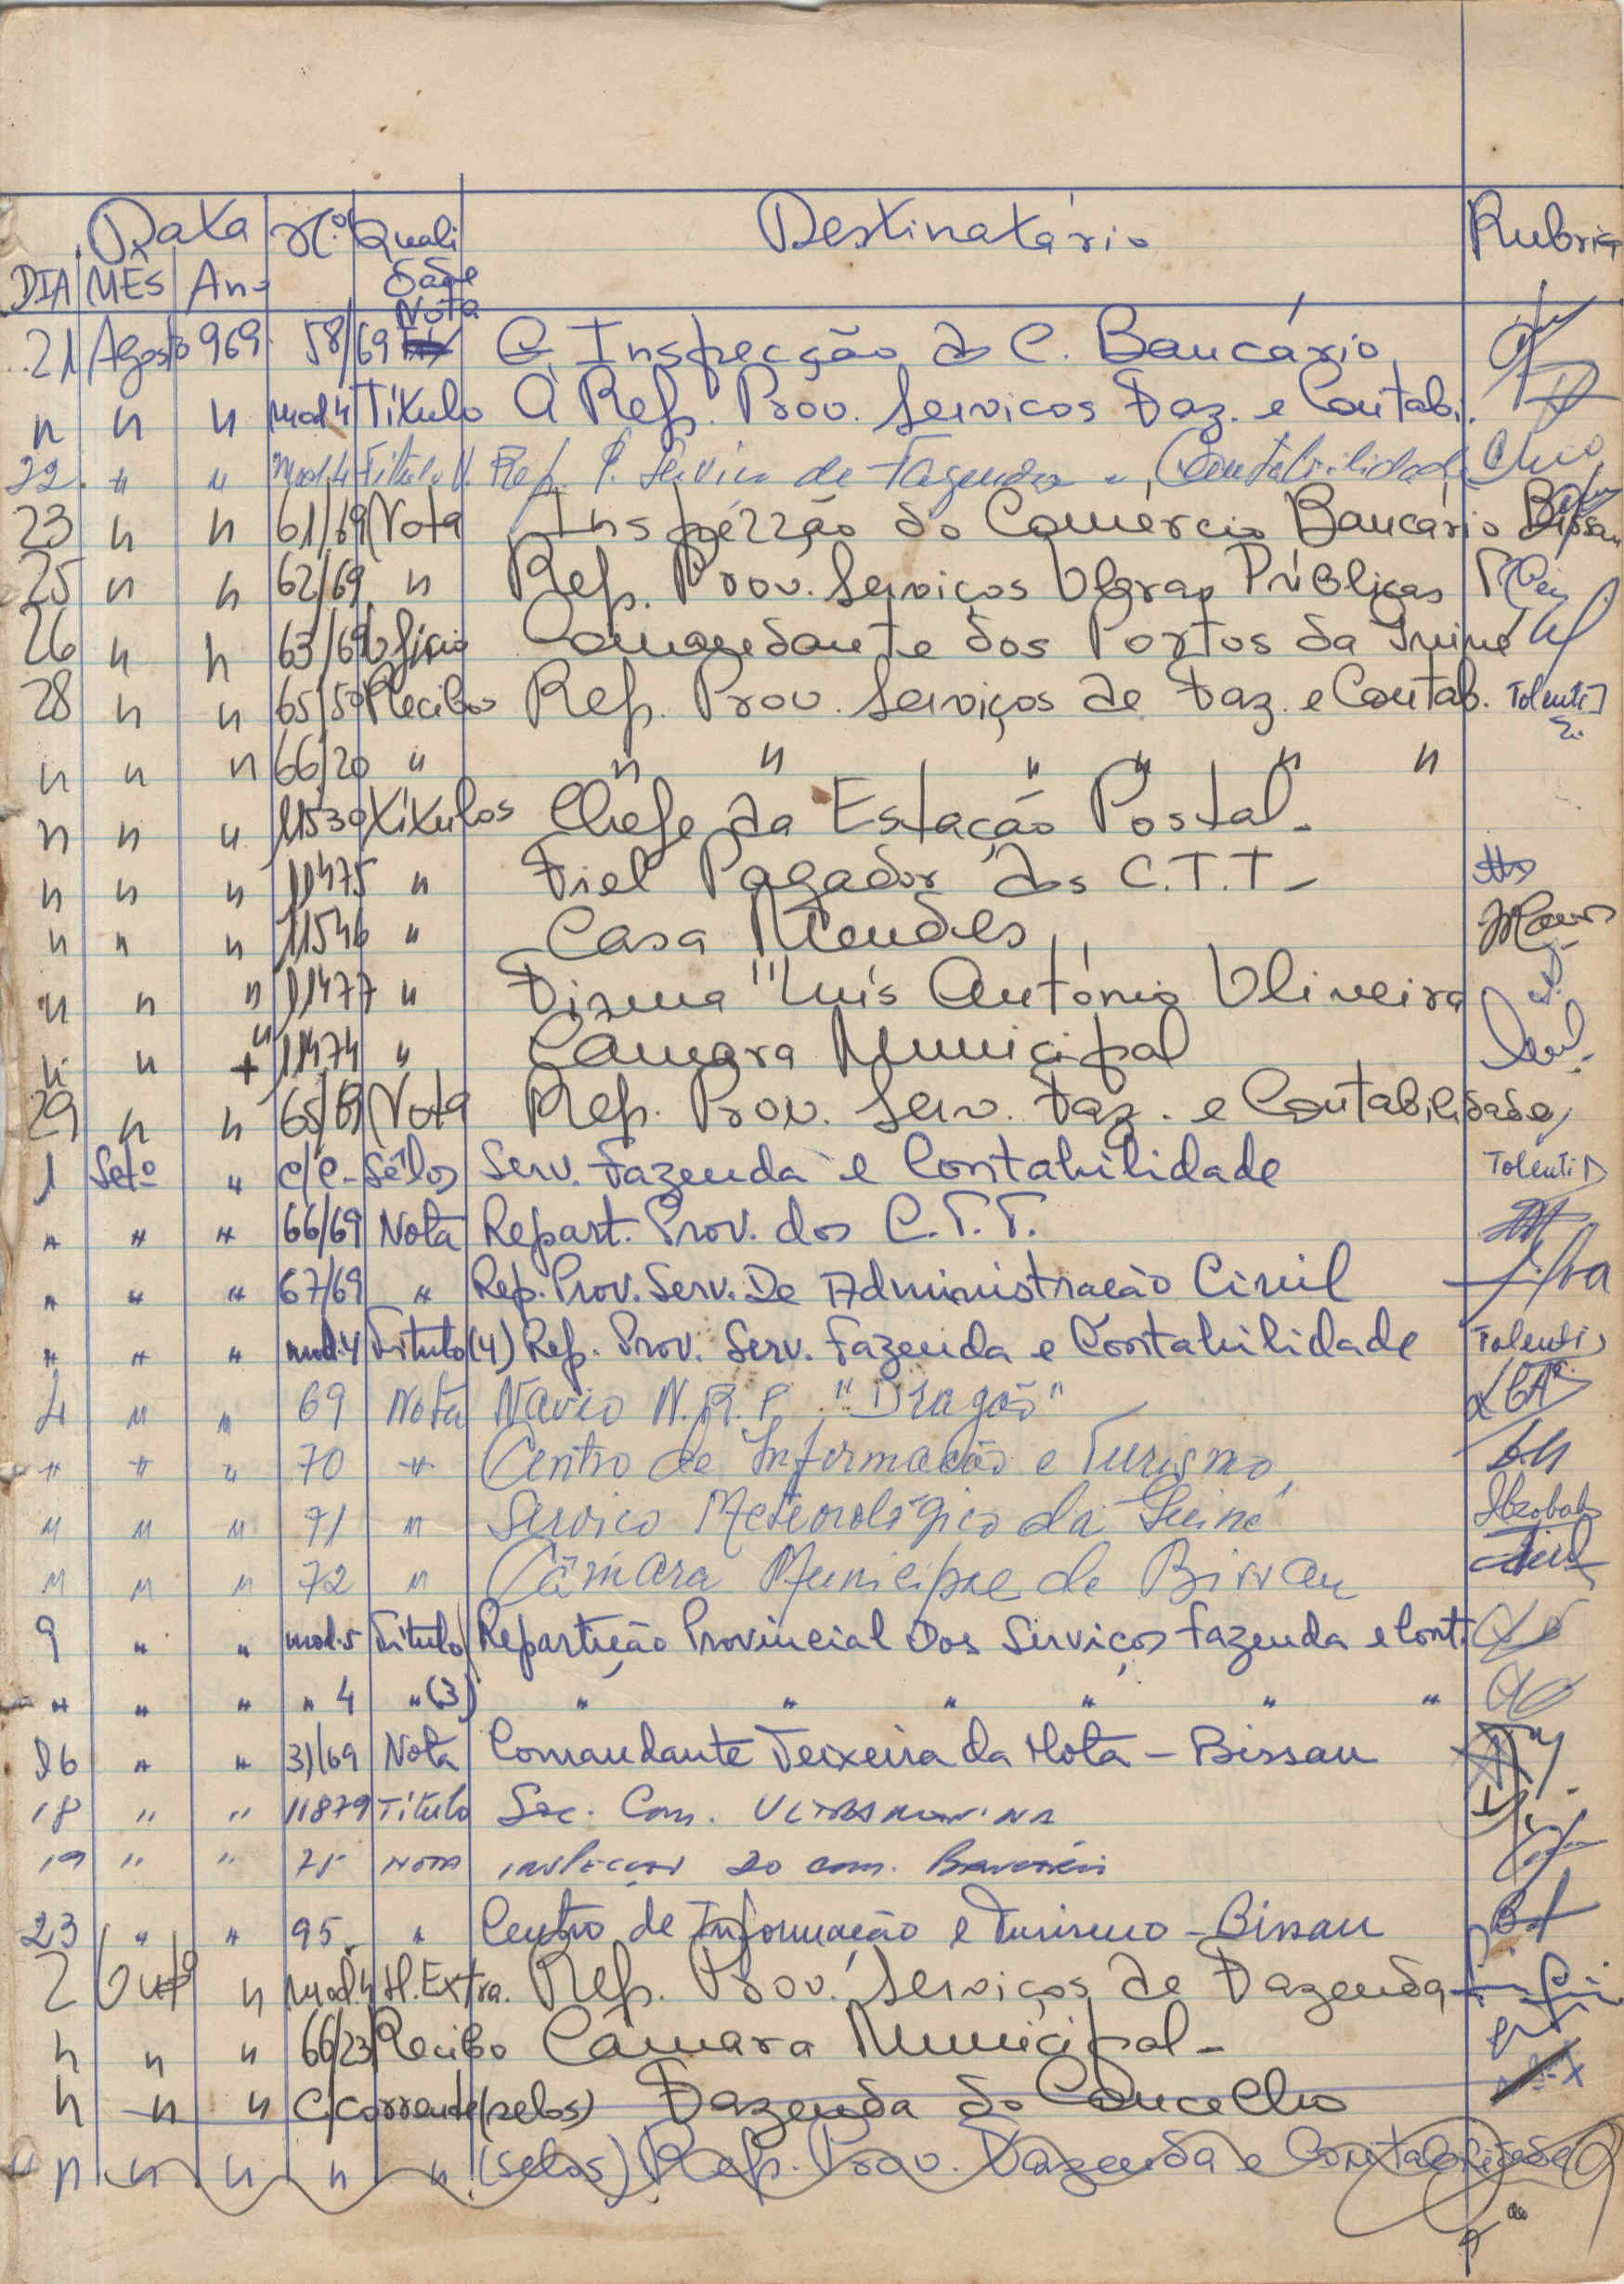 Data Nº Quali Destinatário Rubrica
DIA MÊS Ano dade
Nota
21 Agosto 969 58/69 À Inspecção do C. Bancário
" " " mod 4 Título À Rep. Prov. Serviços Faz. e Contabi.
22 " " Mod. 4 Título Rep. P. Serviço de Fazenda e Contabilidade
23 " " 61/69 Nota Inspeção do Comércio Bancário Bissau
25 " " 62/69 " Rep. Prov. Serviços Obras Públicas
26 " " 63/69 Ofício Comandante dos Portos da Guiné
28 " " 65/50 Recibos Rep. Prov. Serviços de Faz. e Contab. Tolenti
" " " 66/20 " " " " " " "
" " " 11530 Títulos Chefe da Estação Postal-
" " " 11475 " Fiel Pagador dos C.T.T-
" " " 11546 " Casa Mendes
" " " 11477 " Firma "Luís António Oliveira
" " " 11474 " Câmara Municipal
29 " " 65/69 Nota Rep. Prov. Serv. Faz. e Contabilidade
1 Setº " c/c- Sêlos Serv. Fazenda e Contabilidade Tolenti
" " " 66/69 Nota Repart. Prov. dos C.T.T.
" " " 67/69 " Rep. Prov. Serv. De Administração Civil Silva
" " " mod.4 Título (4) Rep. Prov. Serv. Fazenda e Contabilidade Tolenti
4 " " 69 Nota Navio N.R.P. "Dragão"
" " " 70 " Centro de Informação e Turismo
" " " 71 " Serviço Meteorológico da Guiné
" " " 72 " Câmara Municipal de Bissau
9 " " mod.5 Título Repartição Provincial Dos Serviços Fazenda e Cont.
" " " " 4 " (3) " " " " " "
16 " " 31/69 Nota Comandante Teixeira da Mota - Bissau
18 " " 11879 Título Soc. Com. Ultramarina
19 " " 75 Nota Inspecção do Com. Bancário
23 " " 95 " Centro de Informação e Turismo - Bissau
2 Outº " mod.4 H. Extra. Rep. Prov. Serviços de Fazenda
" " " 66/23 Recibo Câmara Municipal-
" " " C/corrente (selos) Fazenda do Concelho
" " " " " (selos) Rep. Prov. Fazenda e Contabilidade